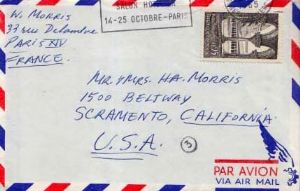 W. Morris
33 rue Delambre
Paris XIV
France.
SALON
14-25 OCTOBRE-PARIS
Mr + Mrs. H.A. Morris
1500 Beltway
Scramento, California
U.S.A.
3
PAR AVION
VIA AIR MAIL